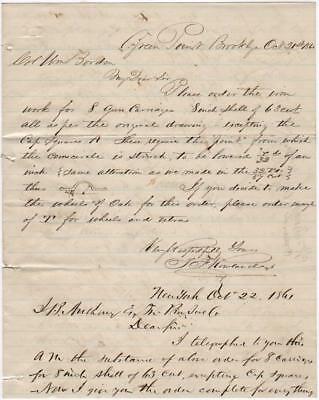 Green Point Brooklyn Oct 21st 1861
Col Wm Borden
My Dear Sir
Please order the iron
work for 8 Gun Carriages 8 inch shell of 63 cwt
all as per the original drawing excepting the
Cap Squares A the point from which
the is struck, to be lowered of an
inch same alteration as we made in the
thus If you decide to make
the wheels of Oak for this order, order
for wheels and
Very Respectfully Yours
T. F. Rowland
New York Oct 22. 1861
J. B. Anthony Esq
Dear Sir
I telegraphed to you this
A M the substance of a order for 8 Carriages
for 8 inch shell of 63 Cwt, excepting Cap Squares,
Now I give you the order complete for everything